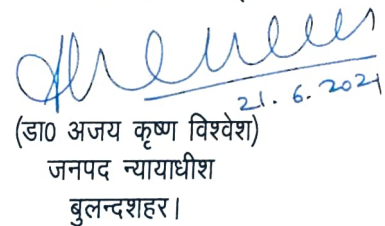 21. 6. 2021
(डा0 अजय कृष्ण विश्वेश)
जनपद न्यायाधीश
बुलन्दशहर।